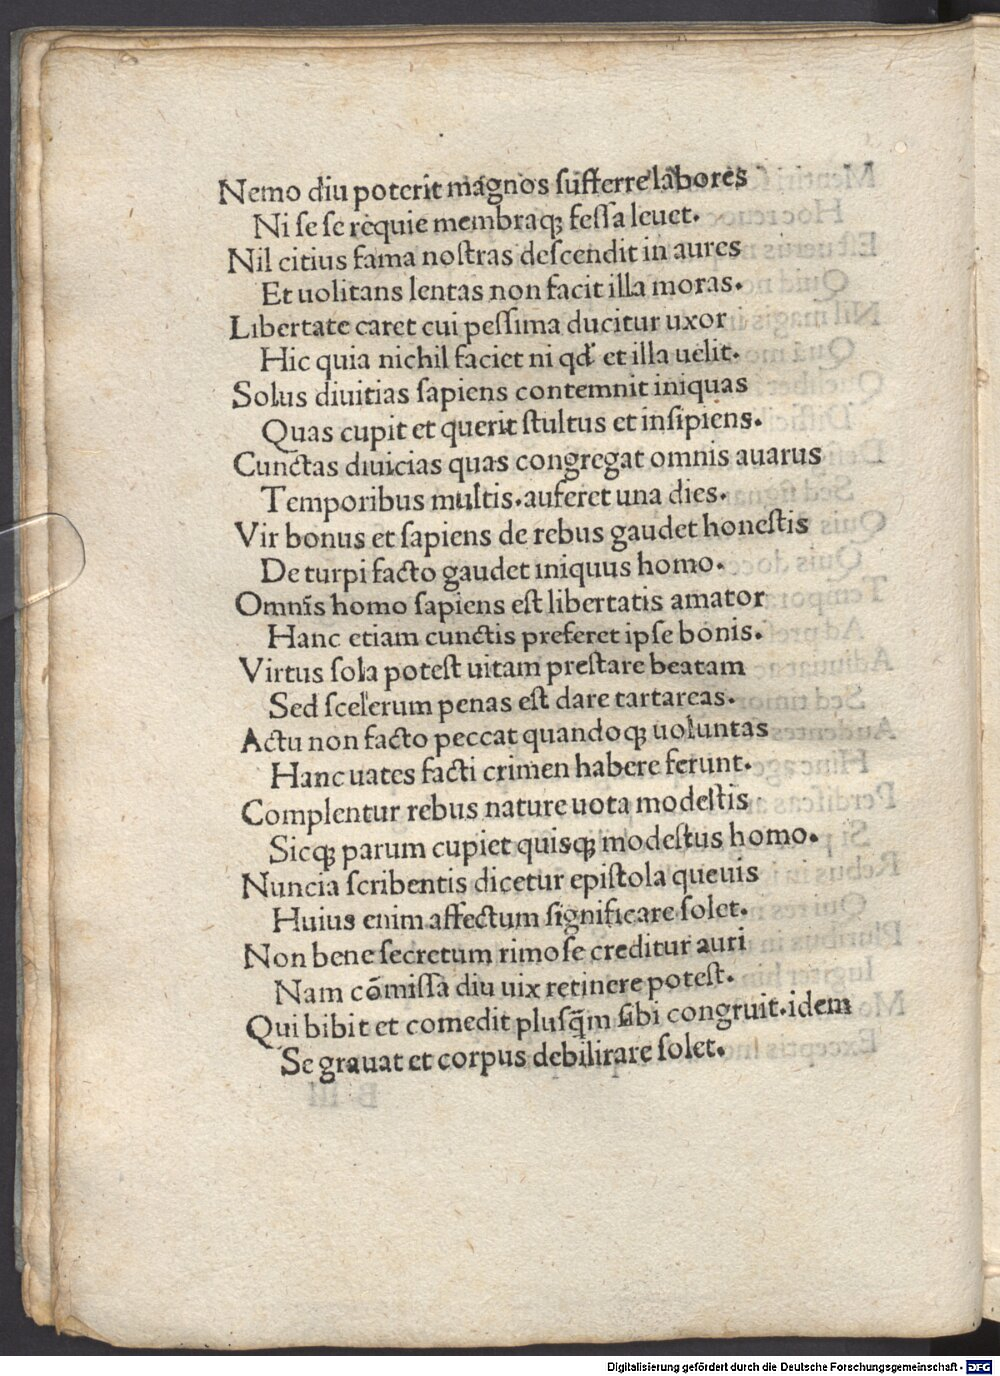 Nemo diu poterit magnos ſufferre labores
Ni ſe ſe requie membraqꝫ feſſa leuet.
Nil citius fama noſtras deſcendit in aures
Et uolitans lentas non facit illa moras.
Libertate caret cui peſſima ducitur uxor
Hic quia nichil faciet ni qd̓ et illa uelit.
Solus diuitias ſapiens contemnit iniquas
Quas cupit et querit ſtultus et inſipiens.
Cunctas diuicias quas congregat omnis auarus
Temporibus multis.auferet una dies.
Vir bonus et ſapiens de rebus gaudet honeſtis
De turpi facto gaudet iniquus homo.
Omnis homo ſapiens eſt libertatis amator
Hanc etiam cunctis preferet ipſe bonis.
Virtus ſola poteſt uitam preſtare beatam
Sed ſcelerum penas eſt dare tartareas.
Actu non facto peccat quandoqꝫ uoluntas
Hanc uates facti crimen habere ferunt.
Complentur rebus nature uota modeſtis
Sicqꝫ parum cupiet quisqꝫ modeſtus homo.
Nuncia ſcribentis dicetur epiſtola queuis
Huius enim affectum ſignificare ſolet.
Non bene ſecretum rimoſe creditur auri
Nam cõmiſſa diu uix retinere poteſt.
Qui bibit et comedit pluſq̃m ſibi congruit.idem
Se grauat et corpus debilirare ſolet.
Digitalisierung gefördert durch die Deutsche Forschungsgemeinschaft - DFG